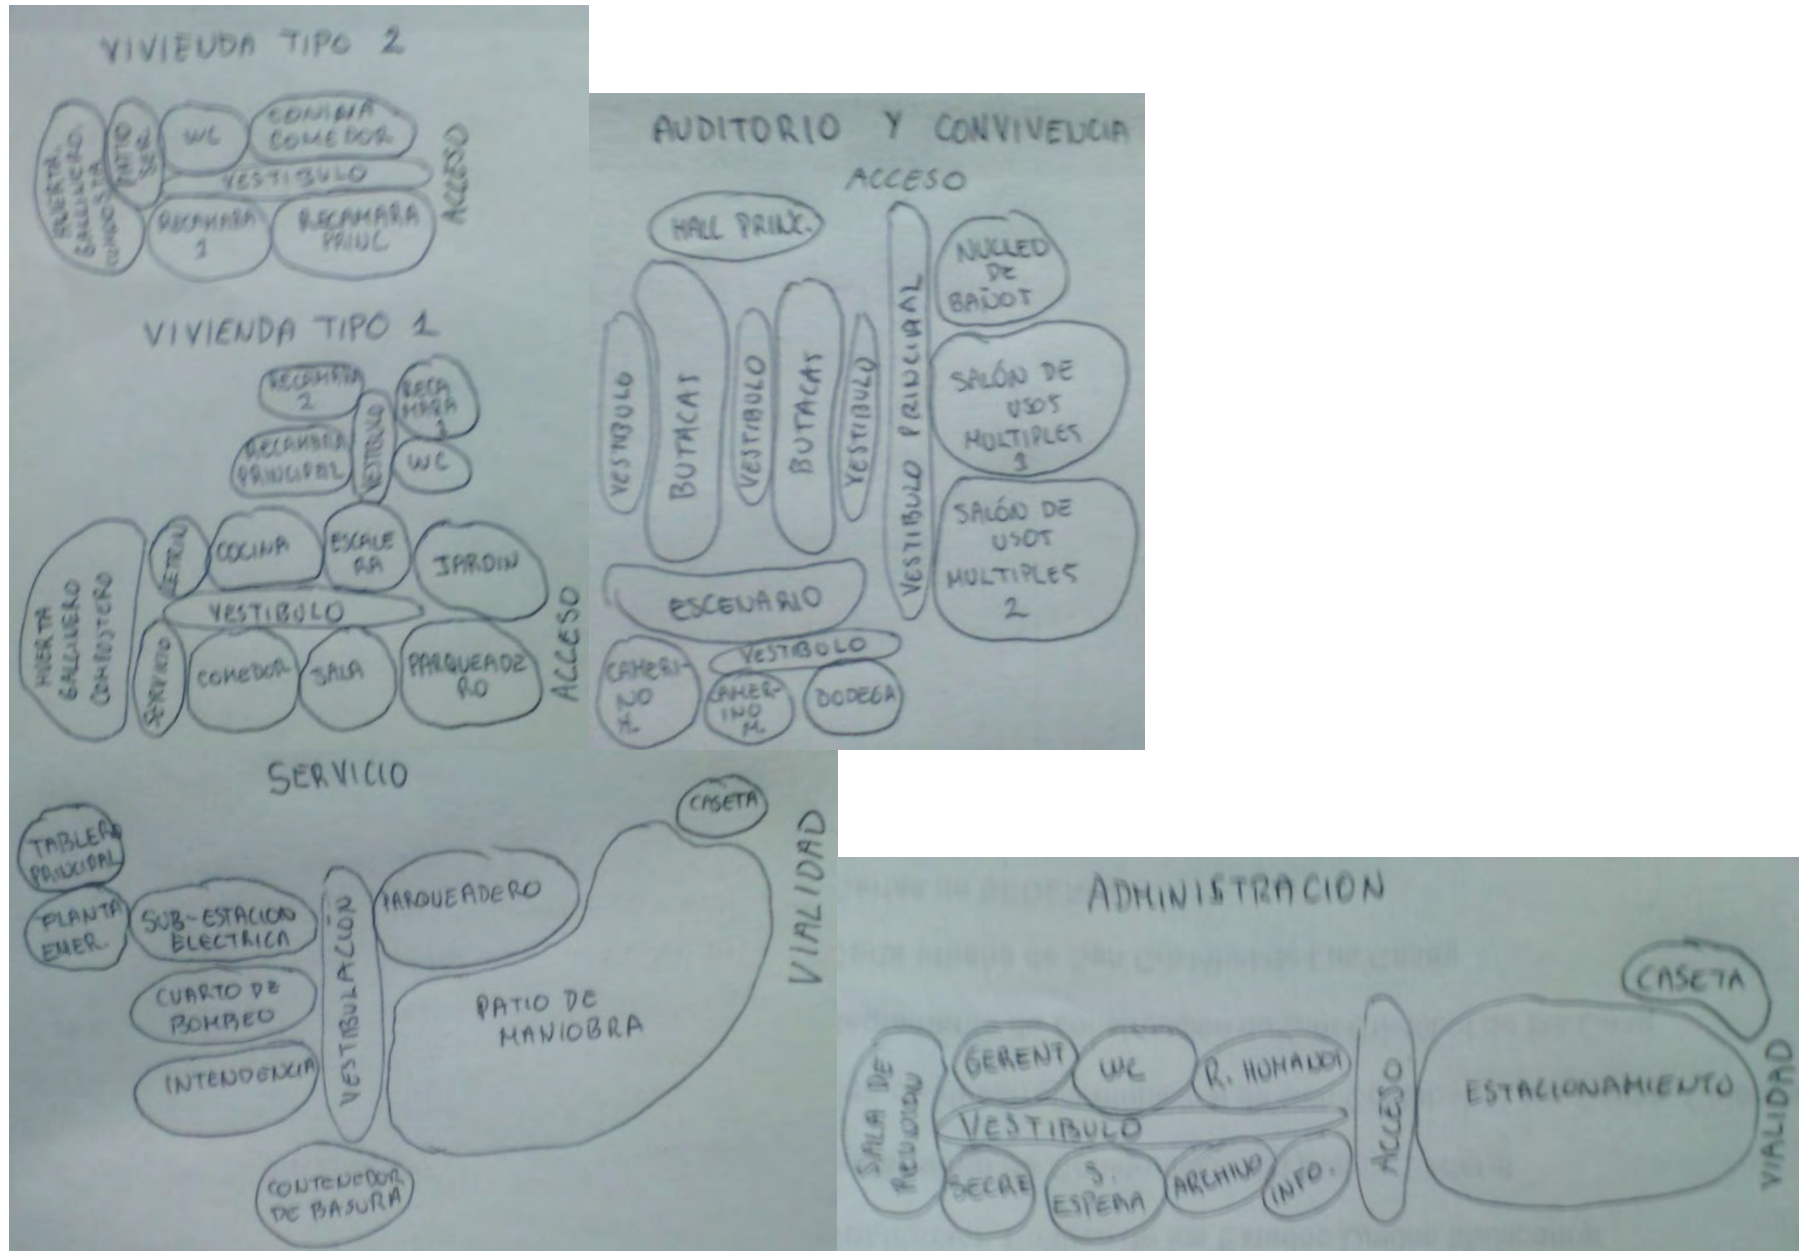 VIVIENDA TIPO 2
HUERTA.
GALLINERO.
PATIO
SER.
WC
COMEDOR
VESTIBULO
RECAMARA
1
RECAMARA
PRINC
ACCESO
VIVIENDA TIPO 1
RECAMARA
2
RECA
MARA
1
RECAMARA
PRINCIPAL
VESTIBULO
WC
HUERTA
GALLINERO
COMPOSTERO
LETRIN
COCINA
ESCALE
RA
JARDIN
VESTIBULO
SERVICIO
COMEDOR
SALA
PARQUEADE
RO
ACCESO
AUDITORIO Y CONVIVENCIA
ACCESO
HALL PRINC.
VESTIBULO
BUTACAS
VESTIBULO
BUTACAS
VESTIBULO
VESTIBULO PRINCIPAL
NUCLEO
DE
BAÑOS
SALÓN DE
USOS
MULTIPLES
1
SALÓN DE
USOS
MULTIPLES
2
ESCENARIO
VESTIBOLO
CAMERI-
NO
H
CAMER-
INO
M
BODEGA
SERVICIO
CASETA
VIALIDAD
TABLERO
PRINCIPAL
PLANTA
EMER.
SUB-ESTACION
ELECTRICA
CUARTO DE
BOMBEO
INTENDENCIA
VESTIBULACIÓN
PARQUEADERO
PATIO DE
MANIOBRA
CONTENEDOR
DE BASURA
ADMINISTRACION
CASETA
SALA DE
REUNION
GERENT
WC
R. HUMANOS
VESTIBULO
SECRE
S.
ESPERA
ARCHIVO
INFO.
ACCESO
ESTACIONAMIENTO
VIALIDAD